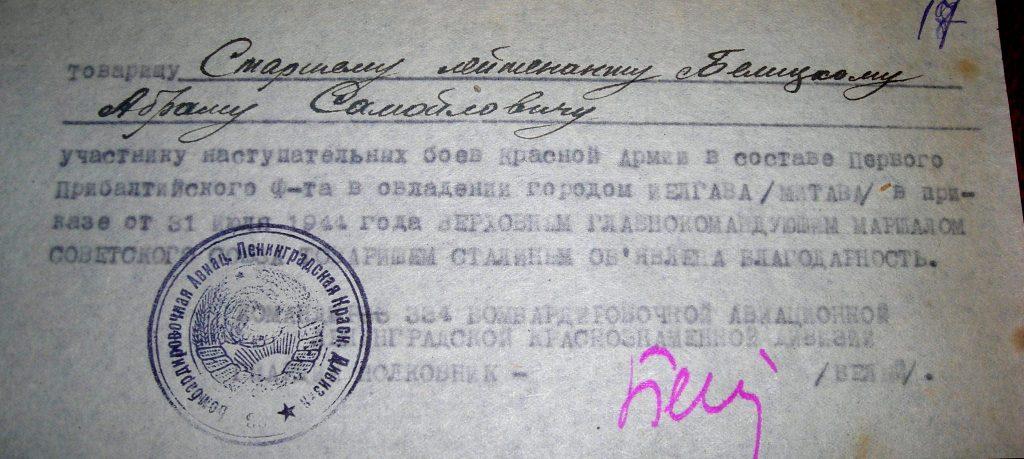 17
товарищу Старшему лейтенанту Белицкому
Абраму Самойловичу
участнику наступательных боев Красной Армии в составе Первого
Прибалтийского Ф-та в овладении городом ЕЛГАВА/МИТАВА/ в при-
казе от 31 июля 1944 года ВЕРХОВНЫМ ГЛАВНОКОМАНДУЮЩИМ МАРШАЛОМ
СОВЕТСКОГО СТАЛИНЫМ ОБ'ЯВЛЕНА БЛАГОДАРНОСТЬ.
334 БОМБАРДИРОВОЧНОЙ АВИАЦИОННОЙ
КРАСНОЗНАМЕННОЙ ДИВИЗИИ
ПОЛКОВНИК - /БЕЛЫЙ/.
Бомбардировочная Авиац. Ленинградская Красн. Дивиз-я